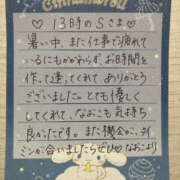 Cinnamoroll
♡ 13時のSさま ♡
暑い中、また仕事で疲れて
いるにもかかわらず、お時間を
作って逢ってくれて ありがとう
ございました。とても優しく
してくれて、なおこも気持ち
良かったです。また機会とタイ
ミンが合いましたらぜひ♡ なおこより